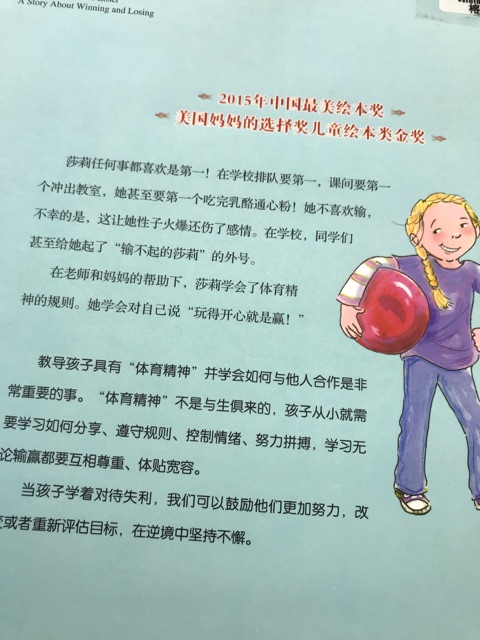 A Story About Winning and Losing
2015年中国最美绘本奖
美国妈妈的选择奖儿童绘本类金奖
莎莉任何事都喜欢是第一！在学校排队要第一，课间要第一
个冲出教室，她甚至要第一个吃完乳酪通心粉！她不喜欢输，
不幸的是，这让她性子火爆还伤了感情。在学校，同学们
甚至给她起了“输不起的莎莉”的外号。
在老师和妈妈的帮助下，莎莉学会了体育精
神的规则。她学会对自己说“玩得开心就是赢！”
教导孩子具有“体育精神”并学会如何与他人合作是非
常重要的事。“体育精神”不是与生俱来的，孩子从小就需
要学习如何分享、遵守规则、控制情绪、努力拼搏，学习无
论输赢都要互相尊重、体贴宽容。
当孩子学着对待失利，我们可以鼓励他们更加努力，改
变或者重新评估目标，在逆境中坚持不懈。